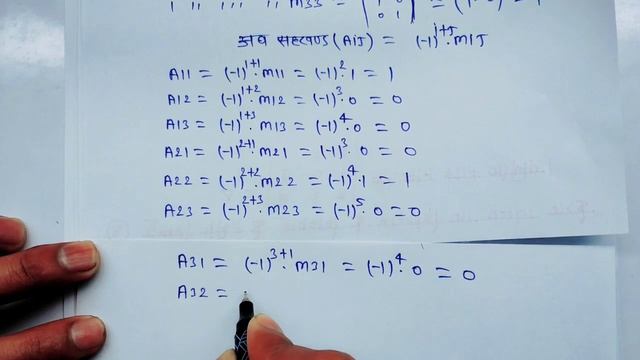 M33 = | 1 0 / 0 1 | =
अब सहखण्ड (AIJ) = (-1)^i+J. MIJ
A11 = (-1)^1+1. M11 = (-1)^2. 1 = 1
A12 = (-1)^1+2. M12 = (-1)^3. 0 = 0
A13 = (-1)^1+3. M13 = (-1)^4. 0 = 0
A21 = (-1)^2+1. M21 = (-1)^3. 0 = 0
A22 = (-1)^2+2. M22 = (-1)^4. 1 = 1
A23 = (-1)^2+3. M23 = (-1)^5. 0 = 0
A31 = (-1)^3+1. M31 = (-1)^4. 0 = 0
A32 =